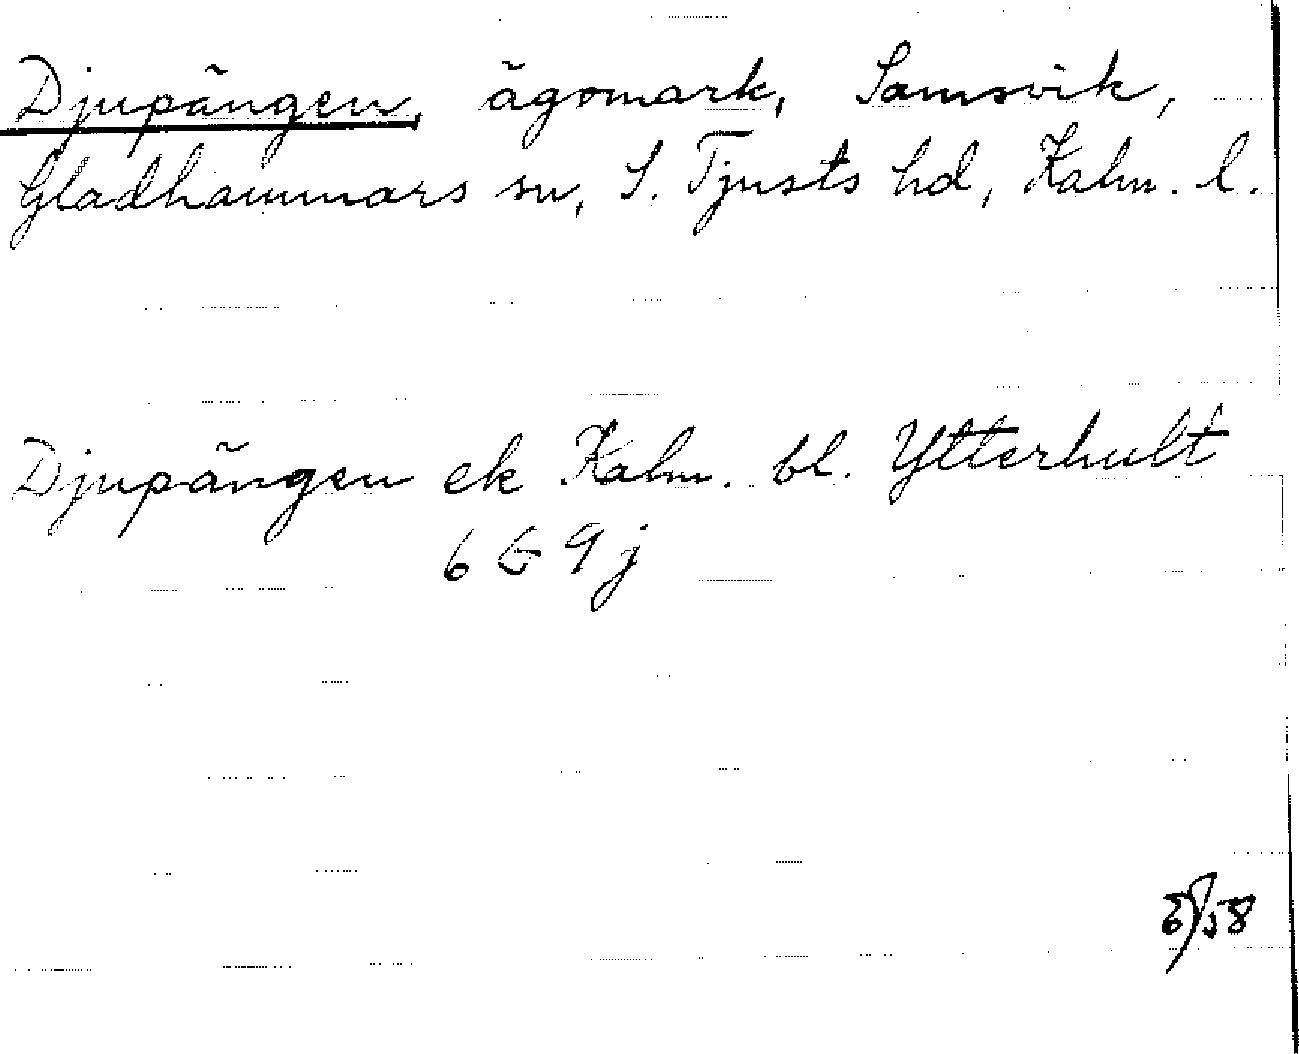 Djupängen, ägomark, Samsvik,
Gladhammars sn, S. Tjusts hd, Kalm. l.
Djupängen ek Kalm. bl. Ytterhult
6 G 9 j
58